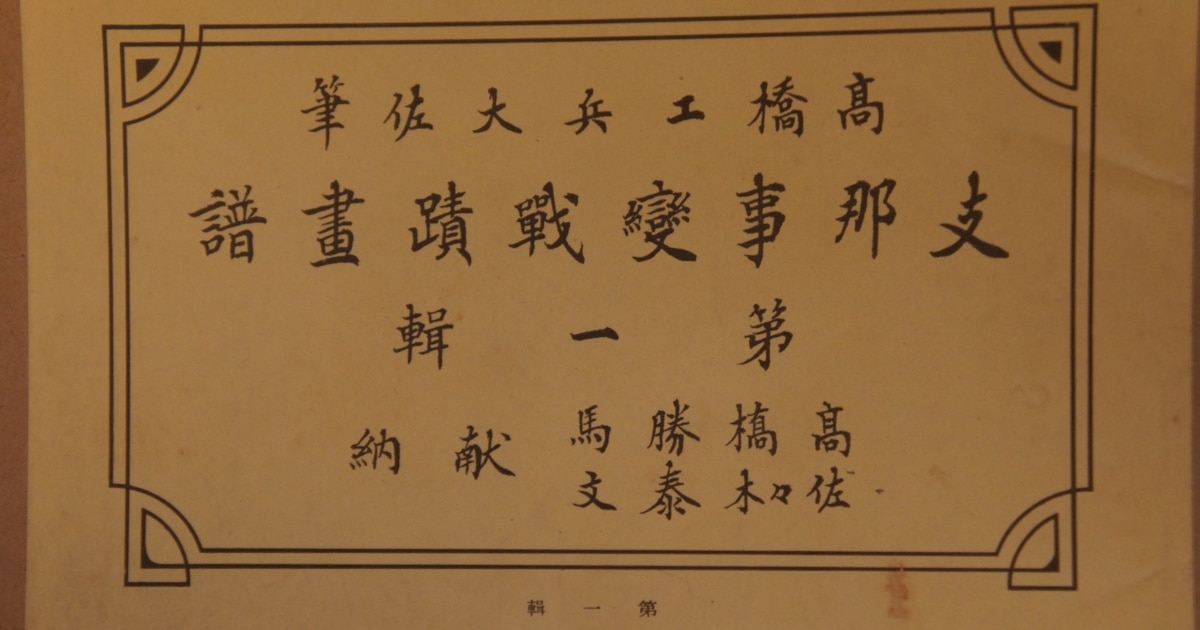 髙橋工兵大佐筆
支那事變戰蹟畫譜
第一輯
髙橋勝馬
佐々木泰文
献納
第一輯